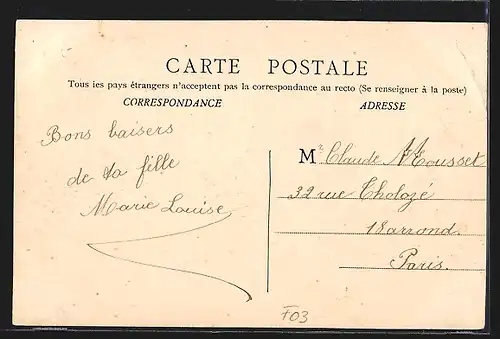 CARTE POSTALE
Tous les pays étrangers n'acceptent pas la correspondance au recto (Se renseigner à la poste)
CORRESPONDANCE
ADRESSE
Bons baisers
de ta fille
Marie Louise
M^r Claude Mousset
32 rue Tholozé
18 arrond.
Paris.
F03